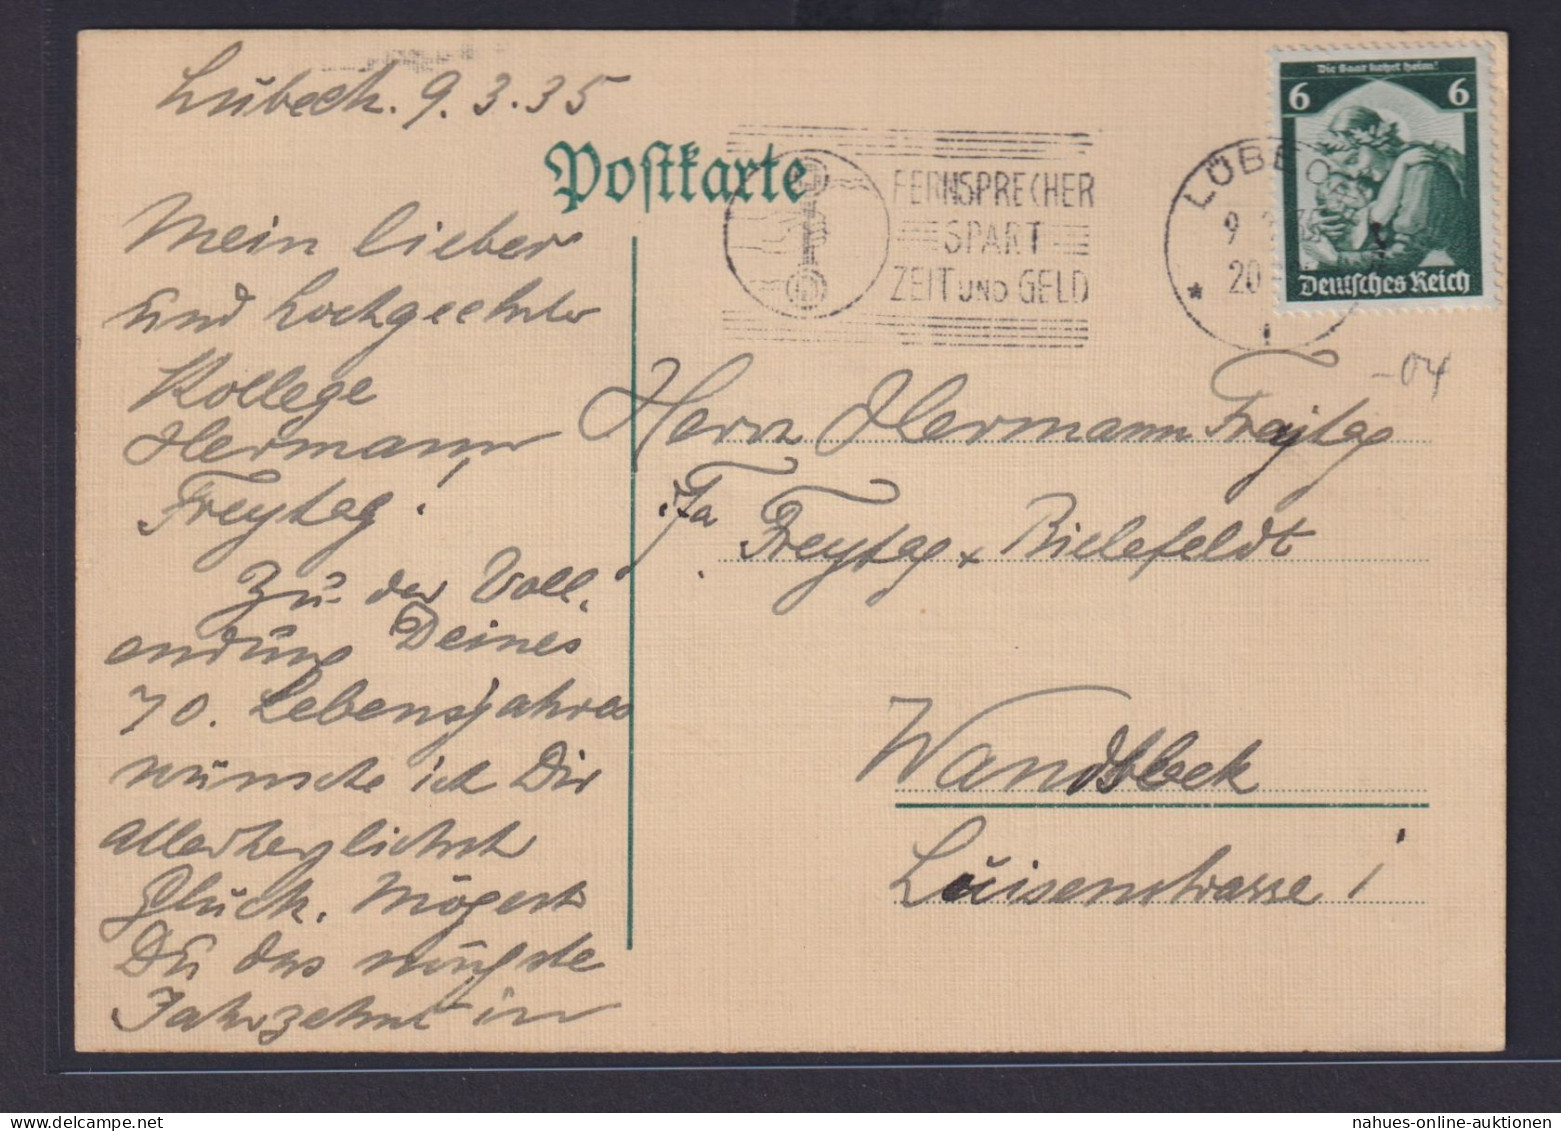 Lübeck. 9.3.35
Postkarte
Mein lieber
und hochgeehrter
Kollege
Hermann
Freytag!
Zu der Voll.
endung Deines
70. Lebensjahres
wünsche ich Dir
allerherzlichst
Glück. Mögest
Du das nächste
Jahrzehnt in
FERNSPRECHER
SPART
ZEIT UND GELD
LÜBECK
9. 3. 35
20
Die Saar kehrt heim!
6 6
Deutsches Reich
-04
Herrn Hermann Freytag
Fa
Freytag + Bielefeldt
Wandsbek
Luisenstrasse 1
nahues-online-auktionen